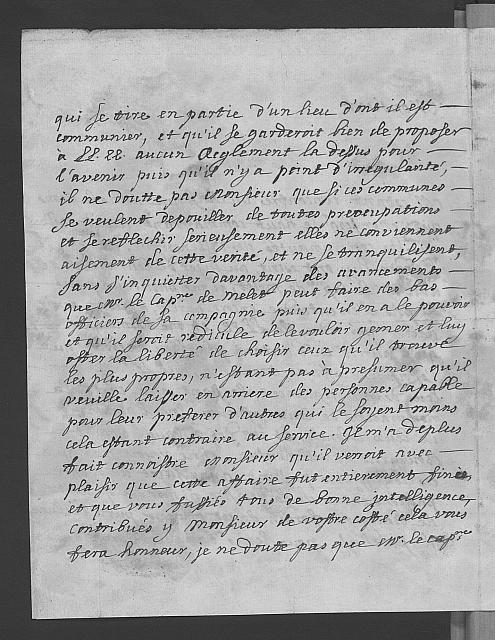 qui se tire en partie d'un lieu d'ont il est
communier, et qu'il se garderoit bien de proposer
a LL. EE. aucun Reglement la dessus pour
l'avenir puis qu'il n'y a point d'irregularité,
il ne doutte pas Monsieur que si ces communes
se veulent depouiller de toutes preocupations
et se reflechir serieusement elles ne conviennent
aisement de cette verité, et ne se tranquilisent,
sans s'inquietter davantage des avancements
que Mr. le Capne de melet peut faire des bas
officiers de sa compagnie puis qu'il en a le pouvoir
et qu'il seroit redicule de le vouloir gener et luy
oster la liberté de choisir ceux qu'il trouve
les plus propres, n'estant pas à presumer qu'il
veuille laisser en arriere des personnes capable
pour leur preferer d'autres qui le soyent moins
cela estant contraire au service. Il m'a de plus
fait connoistre Monsieur qu'il verroit avec
plaisir que cette affaire fut entierement finee
et que vous fussiés tous de bonne intelligence,
contribués y Monsieur de vostre costé cela vous
fera honneur, je ne doute pas que Mr. le capne